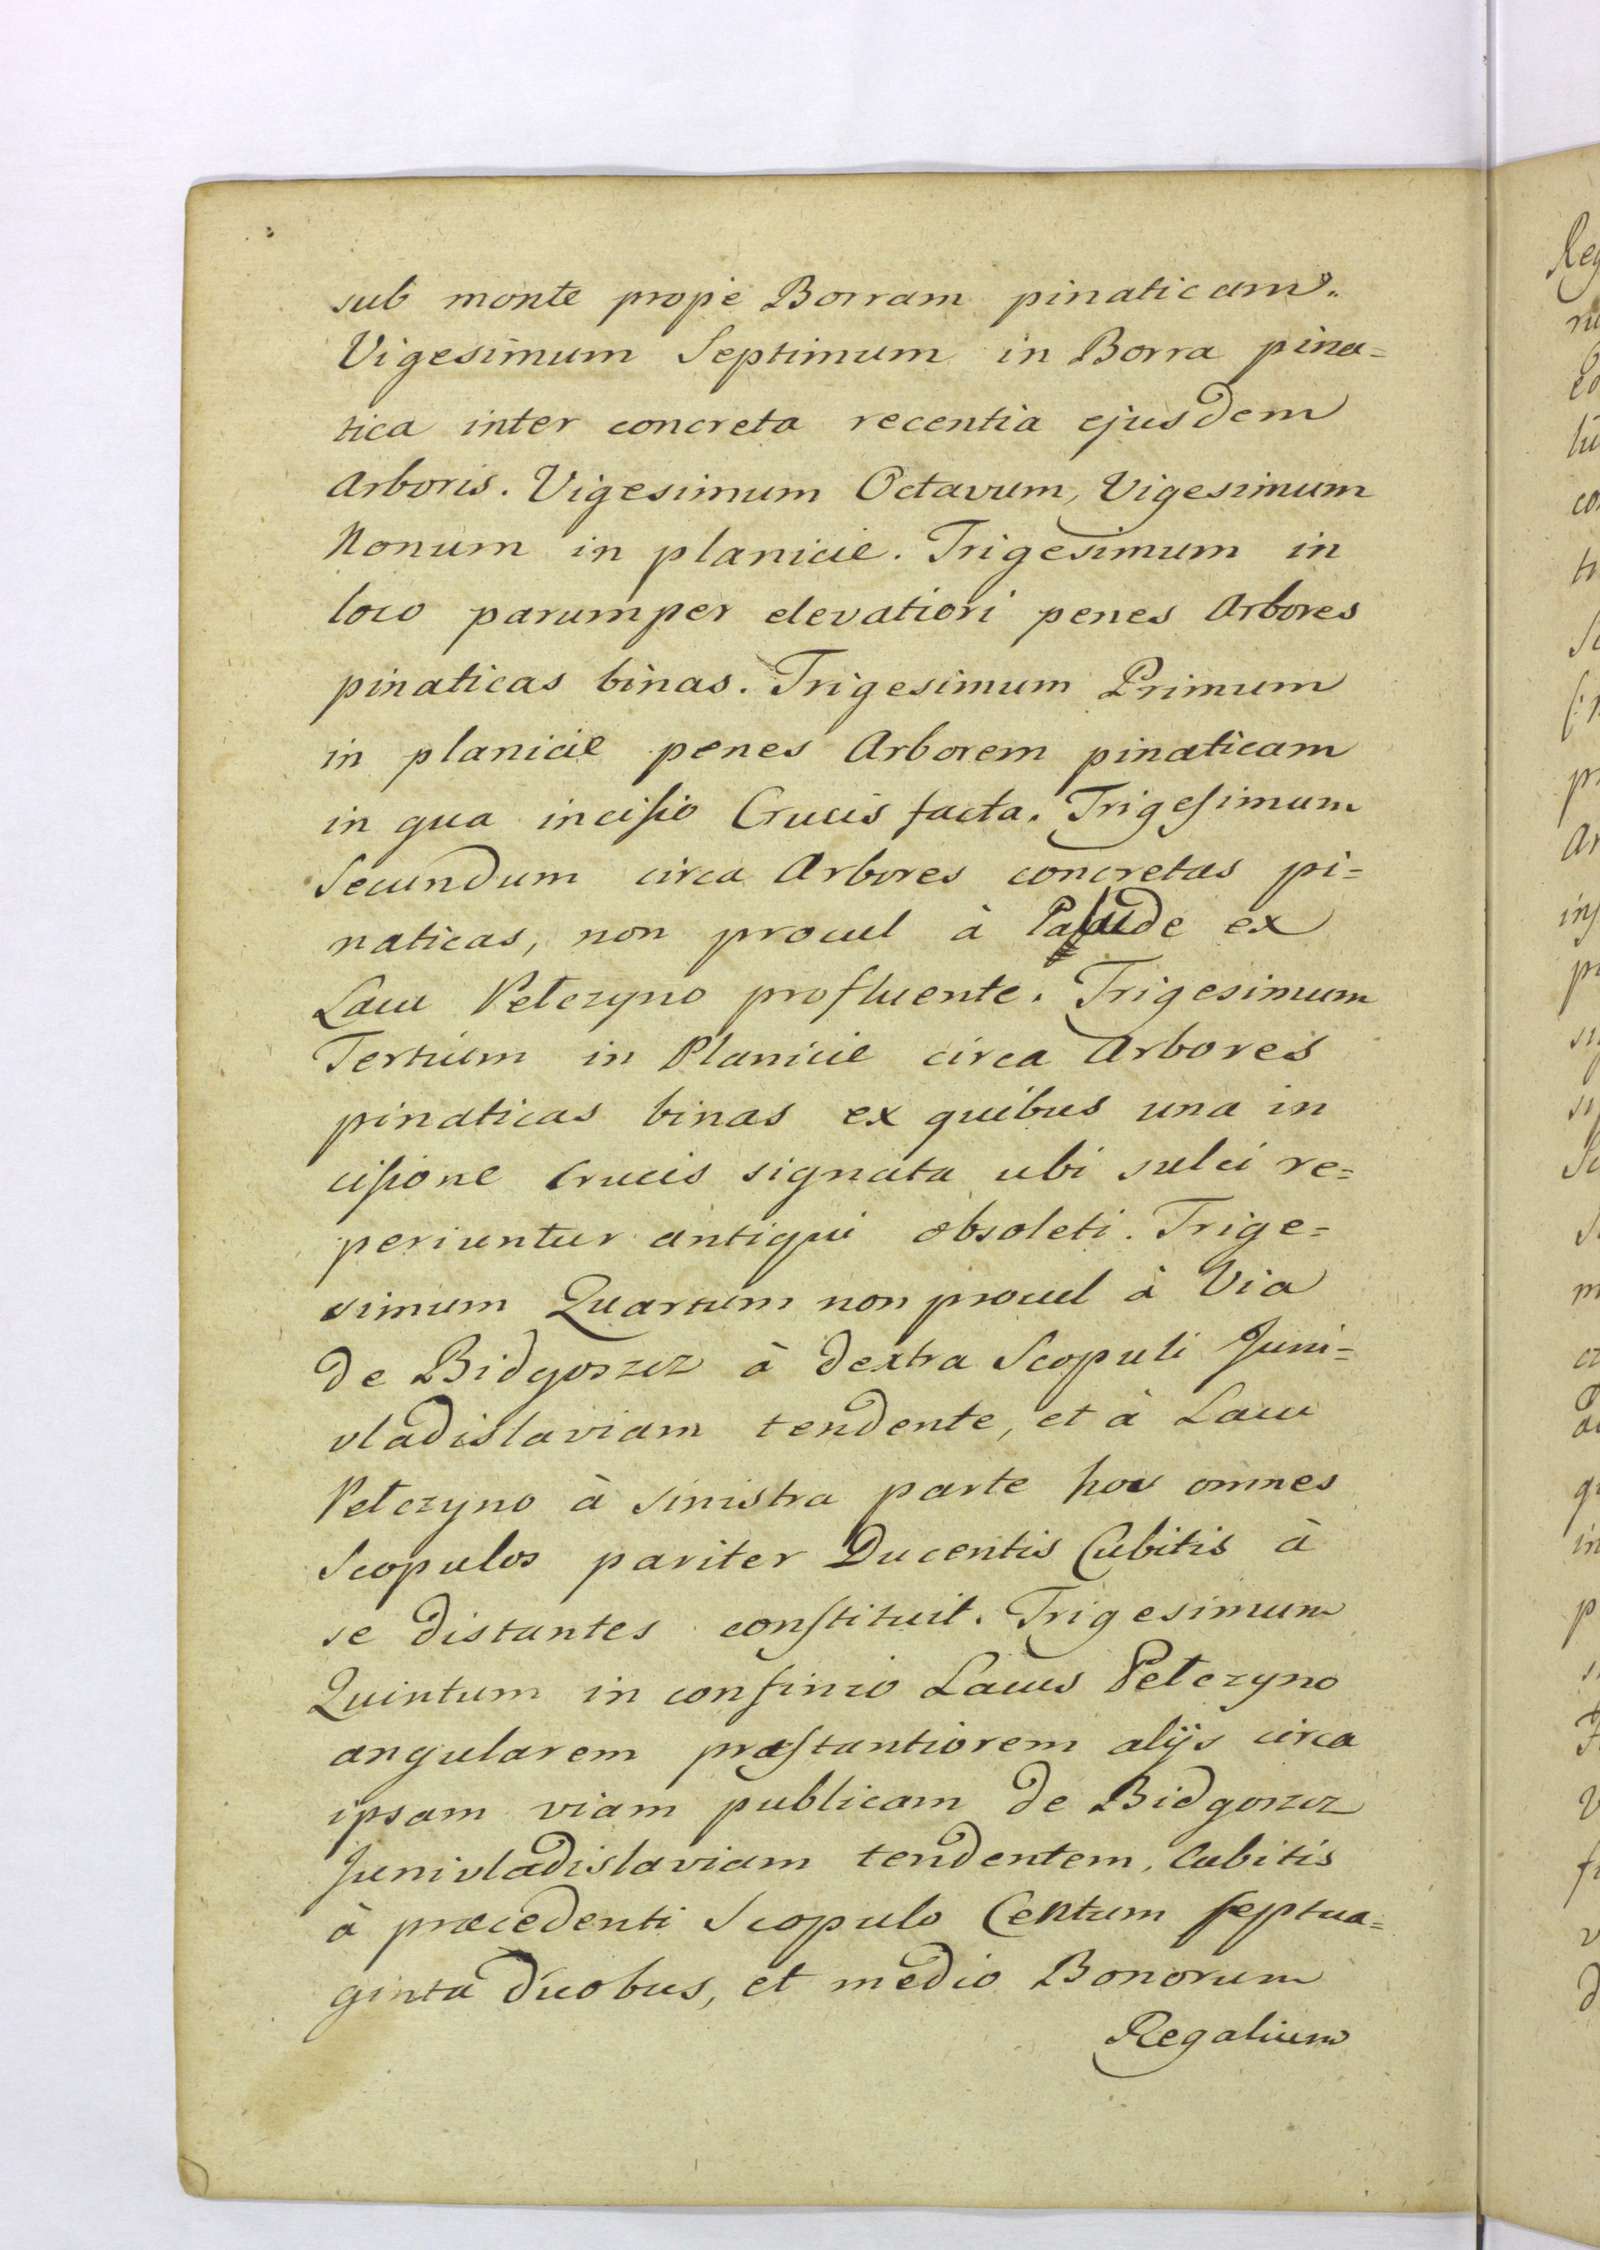 sub monte prope Borram pinaticam.
Vigesimum Septimum in Borra pina=
tica inter concreta recentia ejusdem
Arboris. Vigesimum Octavum, Vigesimum
Nonum in planicie. Trigesimum in
loco parumper elevatiori penes Arbores
pinaticas binas. Trigesimum Primum
in planicie penes Arborem pinaticam
in qua inciſio Crucis facta. Trigeſimum
Secundum circa Arbores concretas pi=
naticas, non procul à Palude ex
Lacu Pełczyno profluente. Trigesimum
Tertium in Planicie circa Arbores
pinaticas binas ex quibus una in
ciſione Crucis signata ubi sulci re=
periuntur antiqui obsoleti. Trige=
simum Quartum non procul à Via
de Bidgoszcz à dextra Scopuli Juni=
vladislaviam tendente, et à Lacu
Pełczyno à sinistra parte hos omnes
Scopulos pariter Ducentis Cubitis à
se distantes conſtituit. Trigesimum
Quintum in confinio Lacus Pełczyno
angularem præſtantiorem alijs circa
ipsam viam publicam de Bidgoszcz
Junivladislaviam tendentem, Cubitis
à præcedenti Scopulo Centum ſeptua=
ginta duobus, et medio Bonorum
Regalium